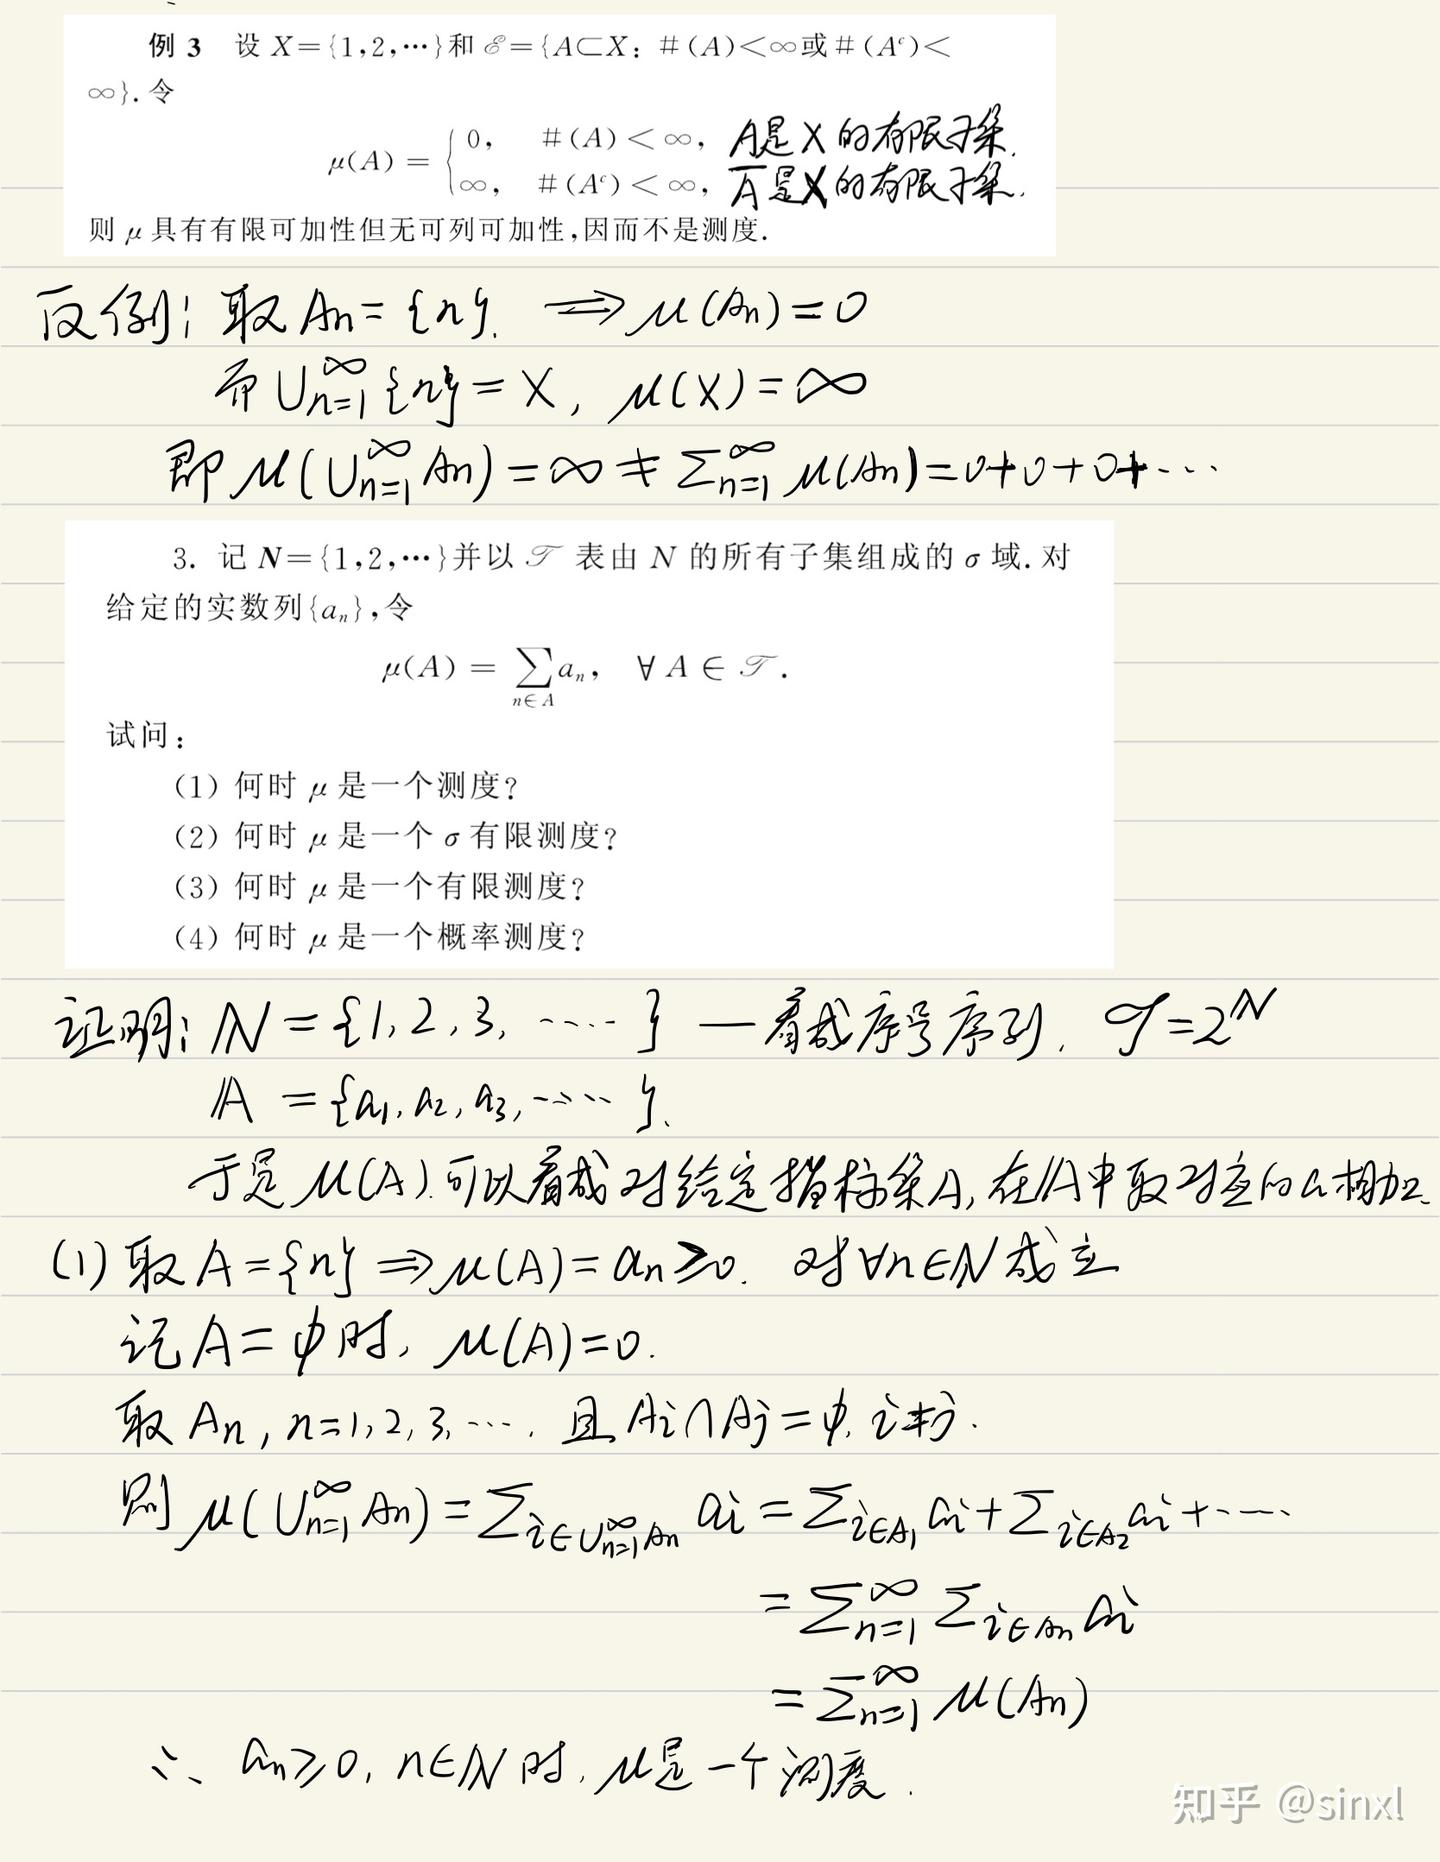 例 3 设 X={1,2,…}和 ℰ={A⊂X: #(A)<∞或#(Aᶜ)<
∞}.令
μ(A) = { 0, #(A)<∞, A是X的有限子集.
∞, #(Aᶜ)<∞, A̅是X的有限子集.
则 μ 具有有限可加性但无可列可加性,因而不是测度.
反例: 取 An={n}. ⟹ μ(An)=0
而 ∪_{n=1}^∞ {n}=X, μ(X)=∞
即 μ(∪_{n=1}^∞ An)=∞≠∑_{n=1}^∞ μ(An)=0+0+0+…
3. 记 N={1,2,…}并以 𝒯 表由 N 的所有子集组成的 σ 域.对
给定的实数列{aₙ},令
μ(A) = ∑_{n∈A} aₙ, ∀ A ∈ 𝒯.
试问:
(1) 何时 μ 是一个测度?
(2) 何时 μ 是一个 σ 有限测度?
(3) 何时 μ 是一个有限测度?
(4) 何时 μ 是一个概率测度?
证明: ℕ={1,2,3,……} —看成序号序列. 𝒯=2^ℕ
𝔸={a₁,a₂,a₃,……}.
于是 μ(A).可以看成对给定指标集A,在𝔸中取对应的a相加.
(1) 取 A={n} ⇒ μ(A)=an≥0. 对∀n∈ℕ成立
记 A=ϕ时, μ(A)=0.
取 An, n=1,2,3,…. 且 Ai∩Aj=ϕ, i≠j.
则 μ(∪_{n=1}^∞ An)=∑_{i∈∪_{n=1}^∞ An} ai=∑_{i∈A₁} ai+∑_{i∈A₂} ai+……
=∑_{n=1}^∞ ∑_{i∈An} ai
=∑_{n=1}^∞ μ(An)
∴ an≥0, n∈ℕ时, μ是一个测度.
知乎 @sinxl